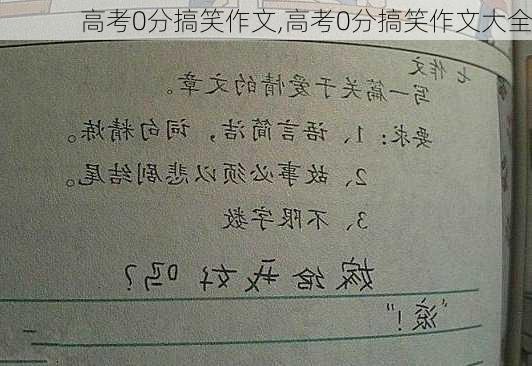 高考0分搞笑作文,高考0分搞笑作文大全
七 作文
写一篇关于爱情的文章。
要求：1、语言简洁，词句精炼。
2、故事必须以悲剧结尾。
3、不限字数
嫁给我好吗？
"滚！"